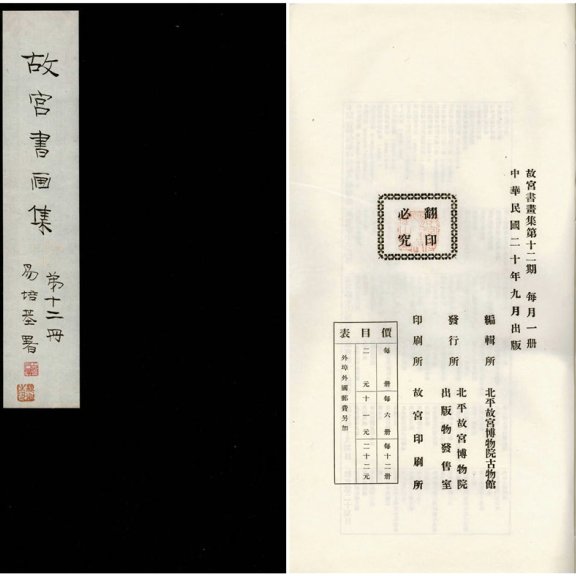 故宮書画集
第十二冊
易培基署
故宮書畫集第十二期　每月一册
中華民國二十年九月出版
翻印
必究
編輯所　北平故宮博物院古物館
發行所　北平故宮博物院
出版物發售室
印刷所　故宮印刷所
價目表
每册　二元
每六册　十一元
每十二册　二十二元
外埠外國郵費另加